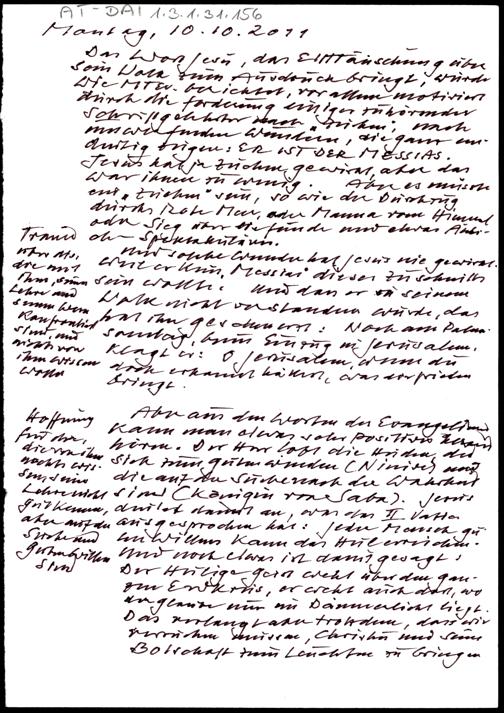 AT-DAI 1.3.1.31.156
Montag, 10.10.2011
Das Wort Jesu, das Enttäuschung über
sein Volk zum Ausdruck bringt, wurde
wie Mt. berichtet, vor allem motiviert
durch die Forderung einiger zuhörender
Schriftgelehrter nach "Zeichen" nach
umwerfenden Wundern, die ganz ein-
deutig zeigen: ER IST DER MESSIAS.
Jesus hat ja Zeichen gewirkt, aber das
war ihnen zu wenig. Aber es müsste
ein "Zeichen" sein, so wie der Durchzug
durchs Rote Meer, oder Manna vom Himmel
oder Sieg über die Feinde und etwas
oder Spektakuläres.
Und solche Wunder hat Jesus nie gewirkt
weil er kein "Messias" dieses Zuschnitts
sein wollte. Und dass er in seinem
Volk nicht verstanden wurde, das
hat ihn geschmerzt: Noch am Palm-
sonntag, beim Einzug in Jerusalem,
klagt er: O Jerusalem, wenn du
doch erkannt hättest, was dir Frieden
bringt.
Trauer
über die,
die mit
ihm, seiner
Lehre und
seinem Werk
konfrontiert
sind, und
nichts von
ihm wissen
wollen
Aber aus den Worten des Evangeliums
kann man etwas sehr Positives
hören. Der Herr lobt die Heiden, die
sich zum Guten wenden (Ninive) und
die auf der Suche nach der Wahrheit
sind (Königin von Saba). Jesus
deutet damit an, was das II. Vatica
ausgesprochen hat: jeder Mensch gu-
ten Willens kann das Heil erreichen.
Und noch etwas ist damit gesagt:
Der Heilige Geist weht über den gan-
zen Erdkreis, er weht auch dort, wo
der Glaube nur im Dämmerlicht liegt.
Das verlangt aber trotzdem, dass wir
versuchen müssen, Christus und seine
Botschaft zum Leuchten zu bringen
Hoffnung
für die,
die von ihm
nichts wis-
sen, seine
Lehre nicht
gut kennen,
aber auf der
Suche und
guten Willens
sind